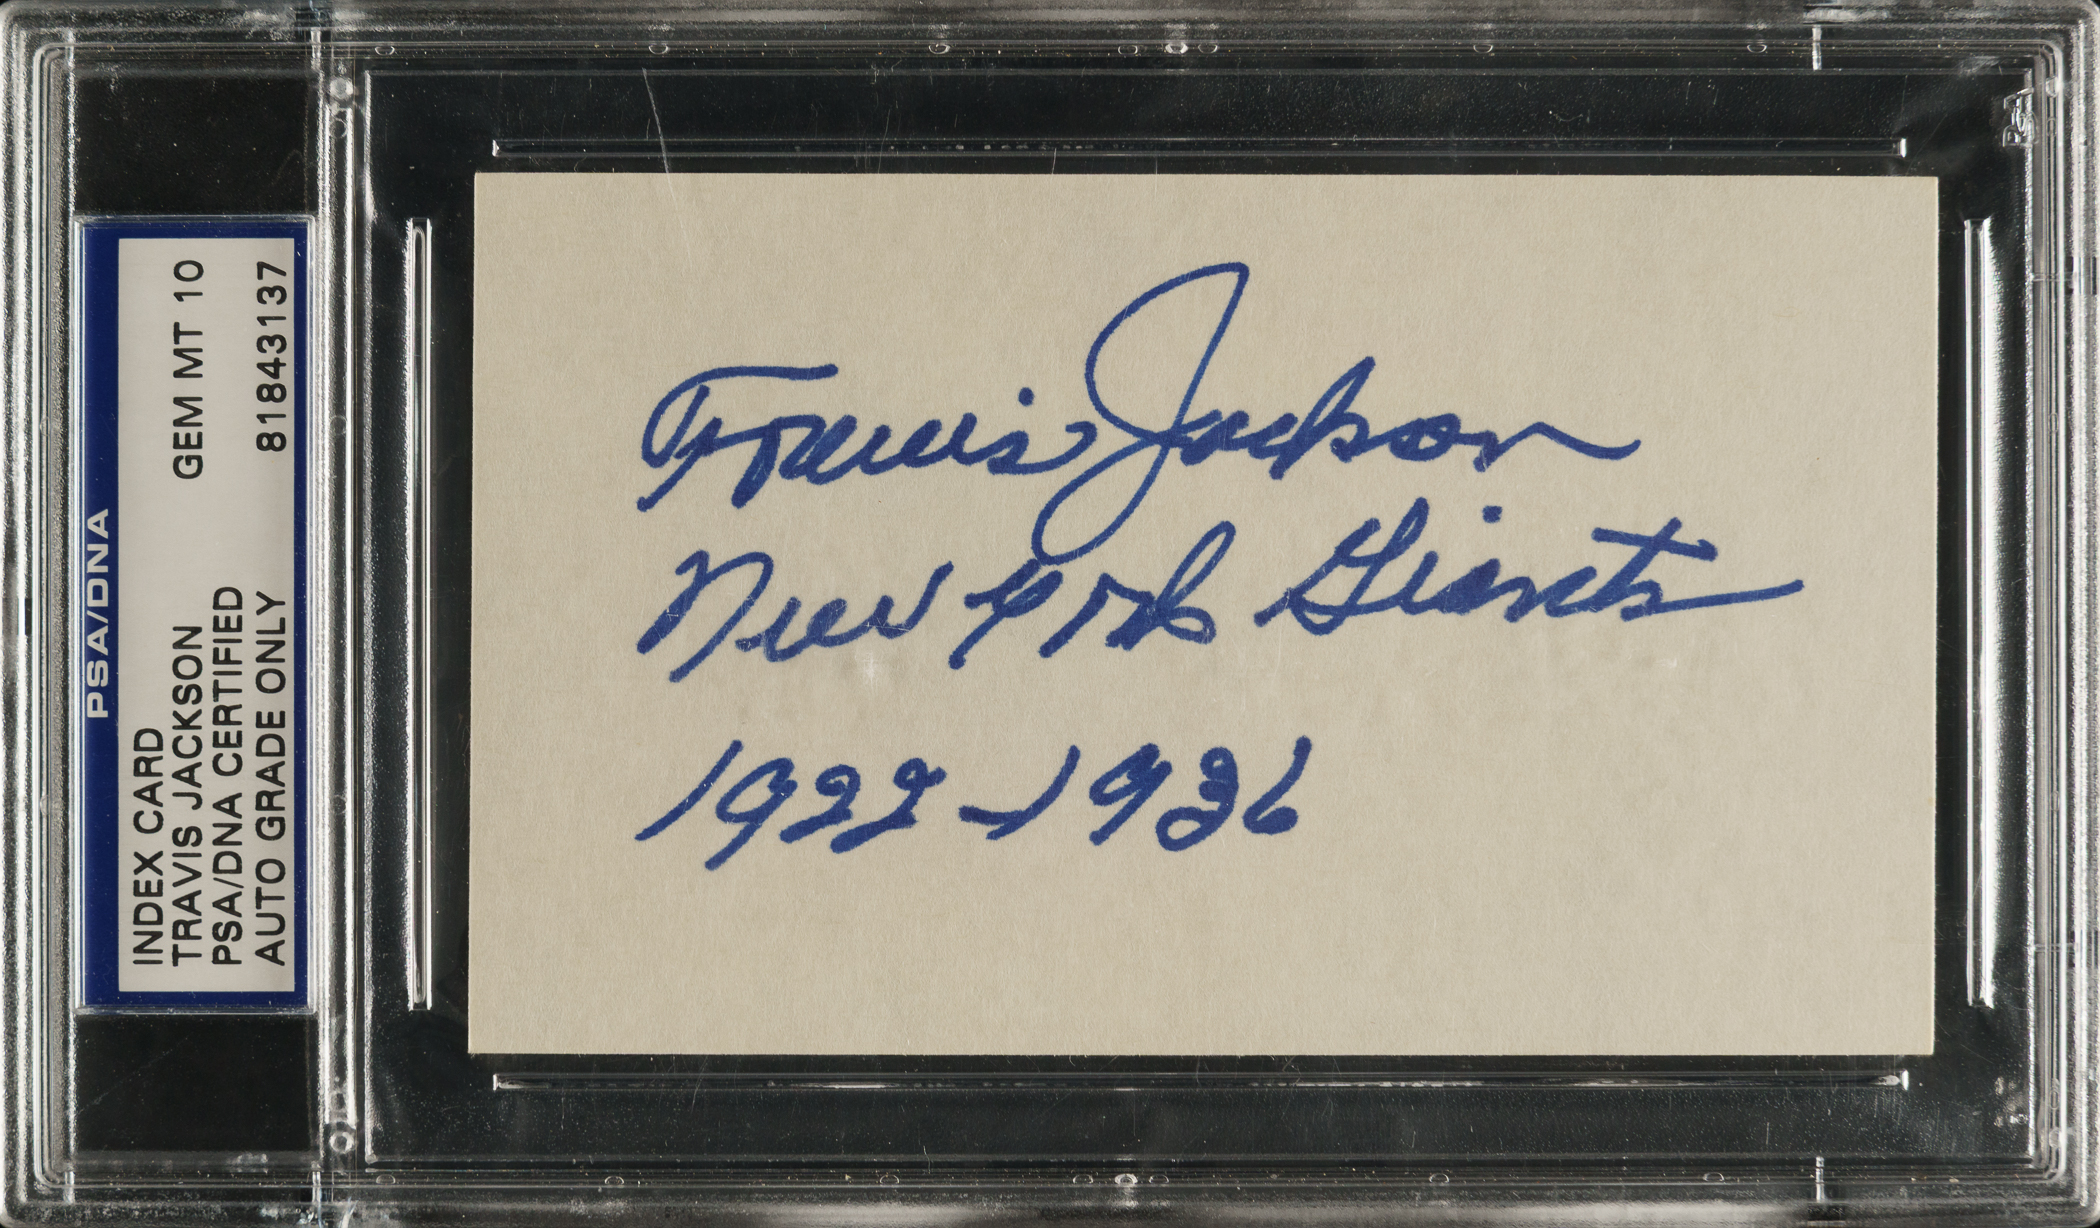 PSA/DNA
INDEX CARD
TRAVIS JACKSON GEM MT 10
PSA/DNA CERTIFIED
AUTO GRADE ONLY 81843137
Travis Jackson
New York Giants
1922-1936